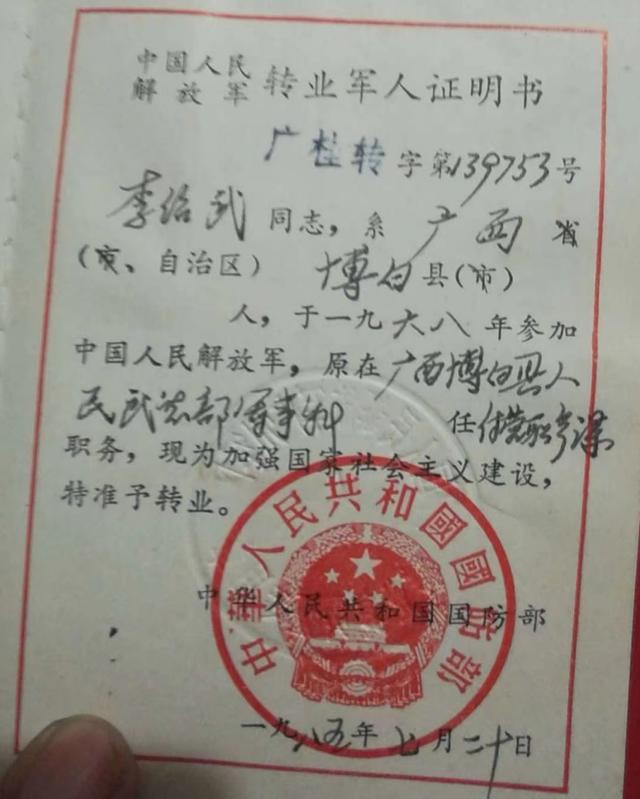 中国人民
解放军 转业军人证明书
广桂转字第139753号
李绍武同志，系广西省
（市、自治区）博白县（市）
人，于一九六八年参加
中国人民解放军，原在广西博白县人
民武装部军事科 任付营职参谋
职务，现为加强国家社会主义建设，
特准予转业。
中华人民共和国国防部
中華人民共和國國防部
一九八五年七月二十日